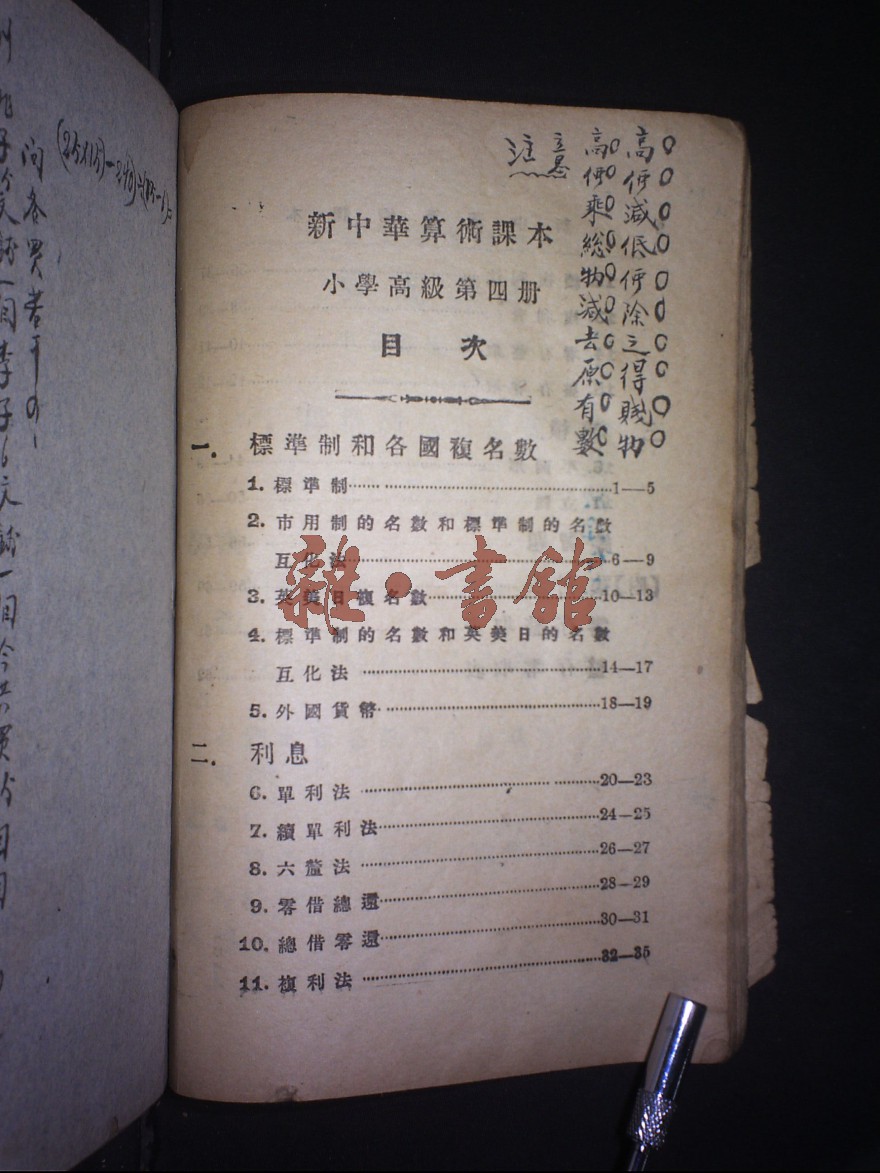 新中華算術課本
小學高級第四册
目 次
一. 標準制和各國複名數
1. 標準制……1—5
2. 市用制的名數和標準制的名數
互化法……6—9
3. 英美日複名數……10—13
4. 標準制的名數和英美日的名數
互化法……14—17
5. 外國貨幣……18—19
二. 利息
6. 單利法……20—23
7. 續單利法……24—25
8. 六釐法……26—27
9. 零借總還……28—29
10. 總借零還……30—31
11. 複利法……32—35
注意
高価減低価除之得賤物
高価乘総物減去原有數
雜·書館
問各買若干